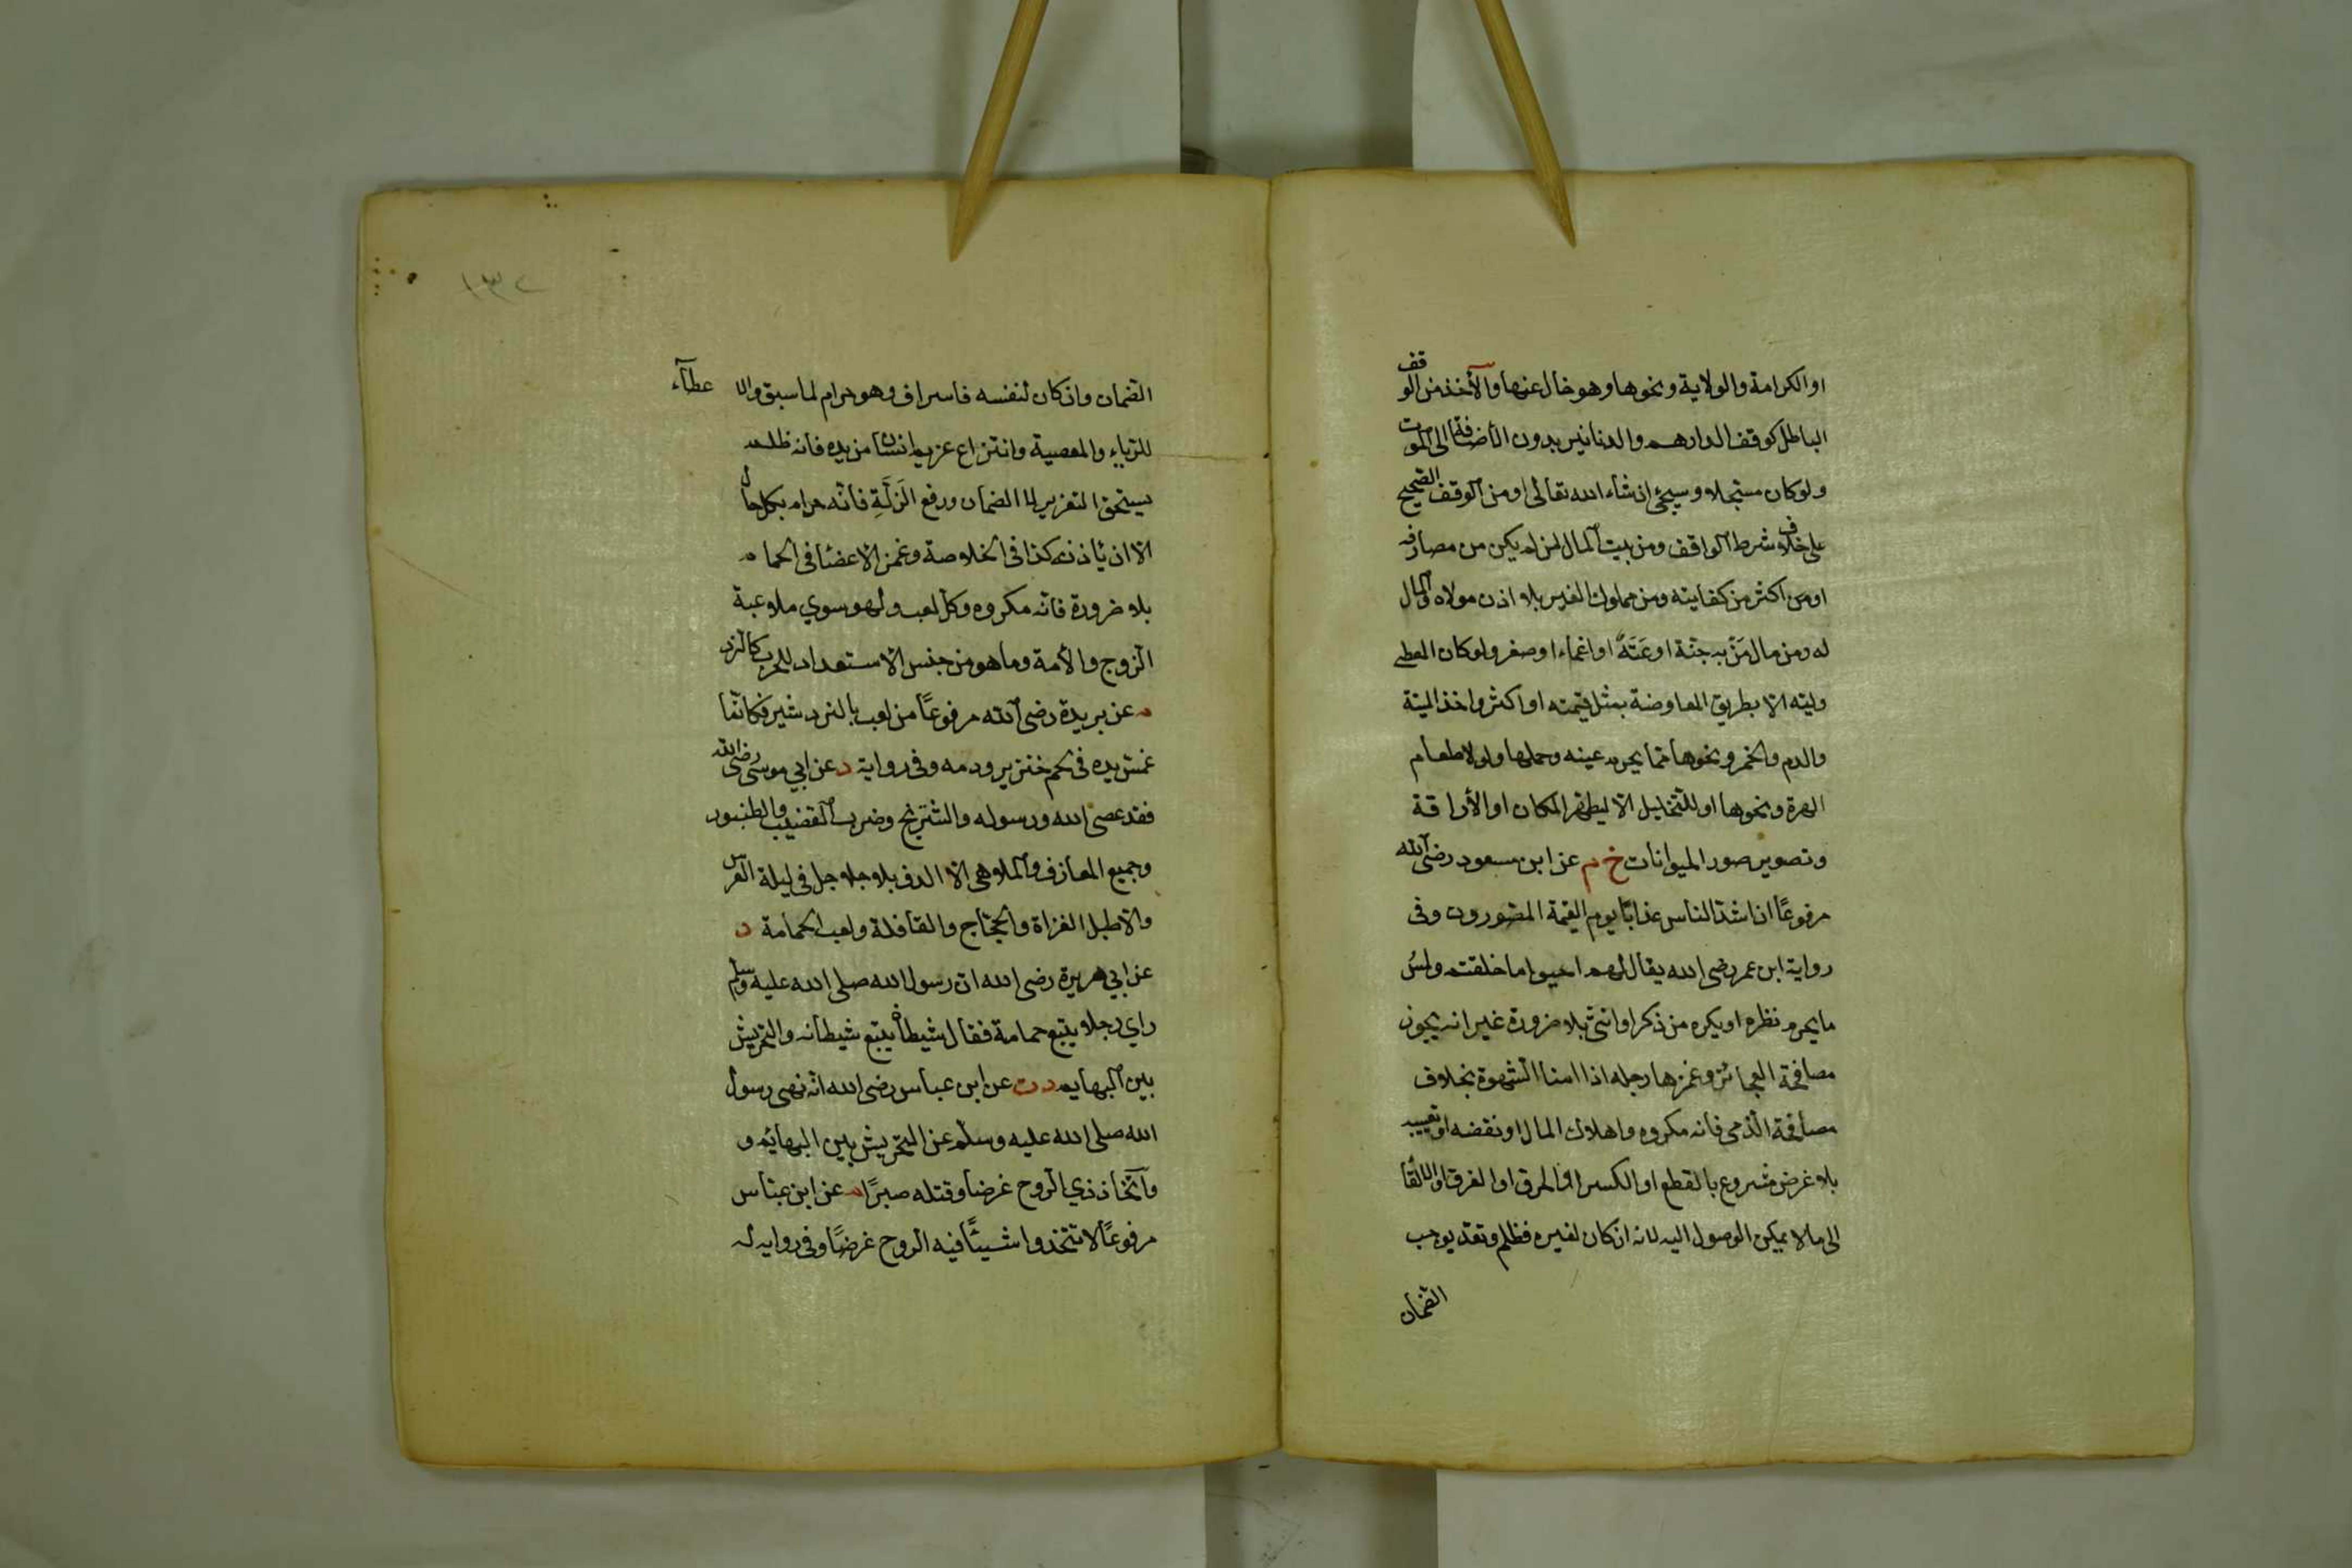 او الكرامة والولاية ونحوها وهو خال عنها والأخذ من الوقف
الباطل كوقف الدارهم والدنانير بدون الأضافة الى الموت
ولو كان مسجلا وسيجئ ان شاء الله تعالى او من الوقف الصحيح
على خلاف شرط الواقف ومن بيت المال لمن لم يكن من مصارفه
او من اكثر من كفايته ومن مملوك الغير بلا اذن مولاه والمال
له ومن مال مَنْ به جنّة او عَتَهٌ او اغماء او صغر ولو كان المعطى
وليّه الا بطريق المعاوضة بمثل قيمته او اكثر واخذ الميتة
والدم والخمر ونحوها مما يحرم عينه وحملها ولو لاطعام
الهرة ونحوها او للتخليل الا ليطهر المكان او الأراقة
وتصوير صور الحيوانات خ م عن ابن مسعود رضى الله
مرفوعًا ان اشدّ الناس عذابًا يوم القيمة المصورون وفى
رواية ابن عمر رضى الله يقال لهم احيوا ما خلقتم ولمسُ
ما يحرم نظره او يكره من ذكر او انثى بلا ضرورة غير انه يجوز
مصافحة العجائز وغمزها رجله اذا امنا الشهوة بخلاف
مصافحة الذمى فانه مكروه واهلاك المال او نقضه او تعييبه
بلا غرض مشروع بالقطع او الكسر او الحرق او الغرق او الالقا
الى ما لا يمكن الوصول اليه لانه ان كان لغيره فظلم وتعدّ يوجب
الضمان
١٣٢
الضمان وان كان لنفسه فاسراف وهو حرام لما سبق والا عطآء
للرياء والمعصية وانتزاع غريم انسان من يده فانه ظلم
يستحق التعزير لا الضمان ورفع الزَلَّةِ فانّه حرام بكل حال
الا ان يأذن كذا فى الخلاصة وغمز الاعضا فى الحمام
بلا ضرورة فانه مكروه وكل لعب ولهو سوي ملاعبة
الزوج والأمة وما هو من جنس الاستعداد للحرب كالنرد
م عن بريدة رضى الله مرفوعًا من لعب بالنرد شير فكانّما
غمس يده فى لحم خنزير ودمه وفى رواية د عن ابي موسى رضى الله
فقد عصى الله ورسوله والشترنج وضرب القضيب والطنبور
وجميع المعازف والملاهى الا الدف بلا جلاجل فى ليلة العرس
والا طبل الغزاة والحجّاج والقافلة ولعب الحمامة د
عن ابي هريرة رضى الله ان رسول الله صلى الله عليه وسلم
راي رجلا يتبع حمامة فقال شيطان يتبع شيطانه والتحريش
بين البهايم د ت عن ابن عباس رضى الله انّه نهى رسول
الله صلى الله عليه وسلم عن التحريش بين البهائم و
واتّخاذ ذي الروح غرضا وقتله صبرًا م عن ابن عبّاس
مرفوعًا لا تتخذوا شيئًا فيه الروح غرضًا وفى رواية له